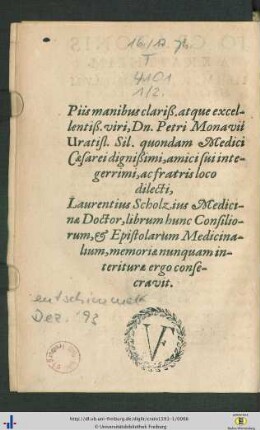 I
4101
1/2.
Piis manibus clariß. atque excel-
lentiß. viri, Dn. Petri Monavii
Uratisl. Sil. quondam Medici
Cæsarei dignißimi, amici sui inte-
gerrimi, ac fratris loco
dilecti,
Laurentius Scholzius Medici-
næ Doctor, librum hunc Consilio-
rum, & Epistolarum Medicina-
lium, memoriæ nunquam in-
terituræ ergo conse-
cravit.
Dez.
VF
© Universitätsbibliothek Freiburg